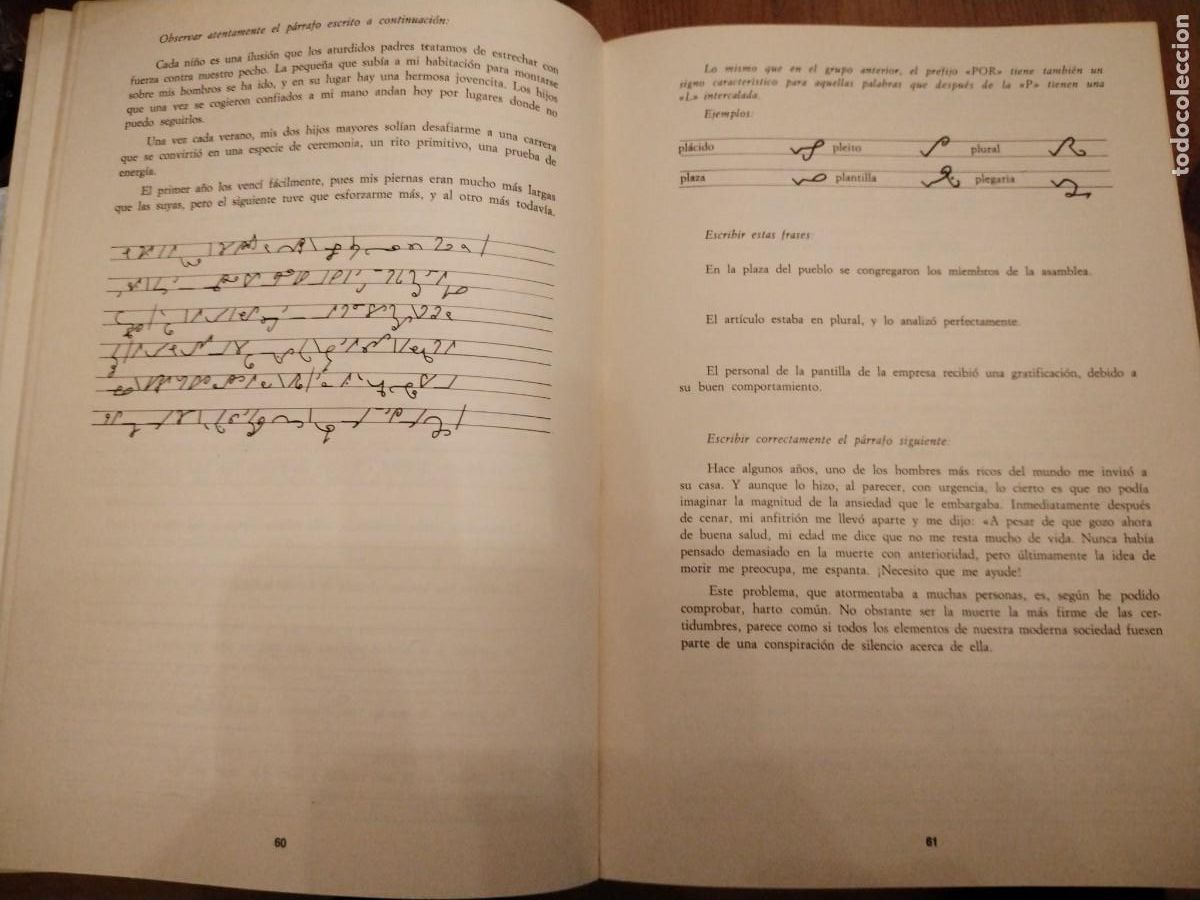 Observar atentamente el párrafo escrito a continuación:
Cada niño es una ilusión que los aturdidos padres tratamos de estrechar con
fuerza contra nuestro pecho. La pequeña que subía a mi habitación para montarse
sobre mis hombros se ha ido, y en su lugar hay una hermosa jovencita. Los hijos
que una vez se cogieron confiados a mi mano andan hoy por lugares donde no
puedo seguirlos.
Una vez cada verano, mis dos hijos mayores solían desafiarme a una carrera
que se convirtió en una especie de ceremonia, un rito primitivo, una prueba de
energía.
El primer año los vencí fácilmente, pues mis piernas eran mucho más largas
que las suyas, pero el siguiente tuve que esforzarme más, y al otro más todavía.
60
Lo mismo que en el grupo anterior, el prefijo «POR» tiene también un
signo característico para aquellas palabras que después de la «P» tienen una
«L» intercalada.
Ejemplos:
plácido pleito plural
plaza plantilla plegaria
Escribir estas frases:
En la plaza del pueblo se congregaron los miembros de la asamblea.
El artículo estaba en plural, y lo analizó perfectamente.
El personal de la pantilla de la empresa recibió una gratificación, debido a
su buen comportamiento.
Escribir correctamente el párrafo siguiente:
Hace algunos años, uno de los hombres más ricos del mundo me invitó a
su casa. Y aunque lo hizo, al parecer, con urgencia, lo cierto es que no podía
imaginar la magnitud de la ansiedad que le embargaba. Inmediatamente después
de cenar, mi anfitrión me llevó aparte y me dijo: «A pesar de que gozo ahora
de buena salud, mi edad me dice que no me resta mucho de vida. Nunca había
pensado demasiado en la muerte con anterioridad, pero últimamente la idea de
morir me preocupa, me espanta. ¡Necesito que me ayude!
Este problema, que atormentaba a muchas personas, es, según he podido
comprobar, harto común. No obstante ser la muerte la más firme de las cer-
tidumbres, parece como si todos los elementos de nuestra moderna sociedad fuesen
parte de una conspiración de silencio acerca de ella.
61
todocoleccion